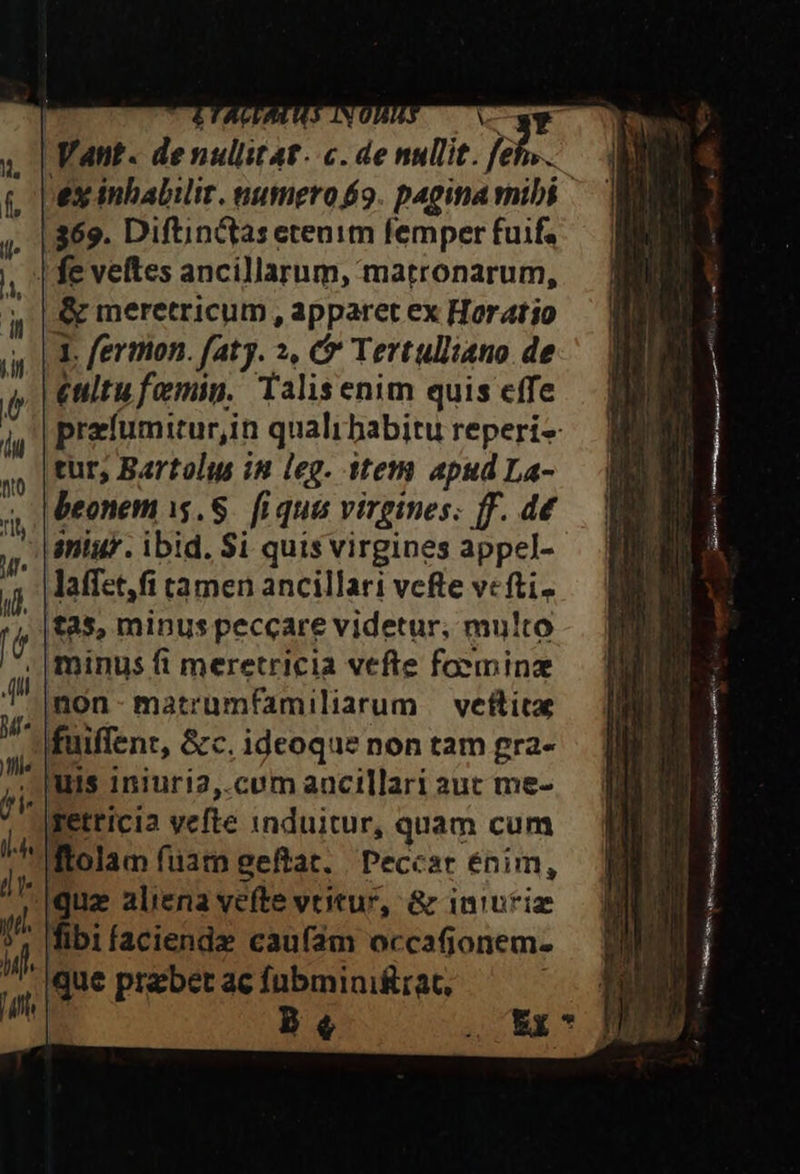 Tractatus Nobilis
Vant. de nullitat. c. de nullit.
ex inhabilit. numero 69. pagina mihi
369. Distinctas etenim semper fuis-
se vestes ancillarum, matronarum,
& meretricum, apparet ex Horatio
1. sermon. saty. 2, & Tertulliano de
cultu fœmin. Talis enim quis esse
præsumitur, in quali habitu reperi-
tur, Bartolus in leg. item apud La-
beonem 15. §. si quis virgines. ff. de
iniur. ibid. Si quis virgines appel-
lasset, si tamen ancillari veste vesti-
tas, minus peccare videtur, multo
minus si meretricia veste fœminæ
non matrumfamiliarum vestitæ
fuissent, &c. ideoque non tam gra-
uis iniuria, cum ancillari aut me-
retricia veste induitur, quam cum
stolam suam gestat. Peccat enim,
quæ aliena veste vtitur, & iniuriæ
sibi faciendæ causam occasionem-
que præbet ac subministrat,
B 4 Ex